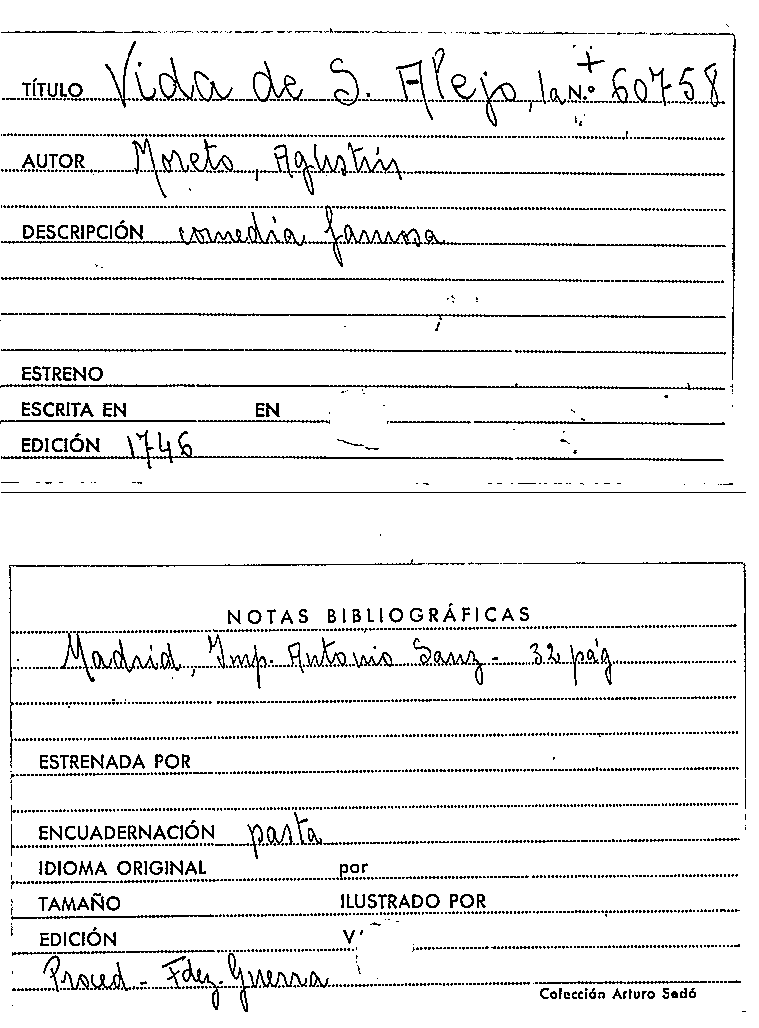 TÍTULO Vida de S. Alejo, la N.º + 60758
AUTOR Moreto, Agustín
DESCRIPCIÓN comedia famosa
ESTRENO
ESCRITA EN EN
EDICIÓN 1746
NOTAS BIBLIOGRÁFICAS
Madrid, Imp. Antonio Sanz - 32 pág
ESTRENADA POR
ENCUADERNACIÓN pasta
IDIOMA ORIGINAL por
TAMAÑO ILUSTRADO POR
EDICIÓN V
Proced - Fdez. Guerra
Colección Arturo Sedó